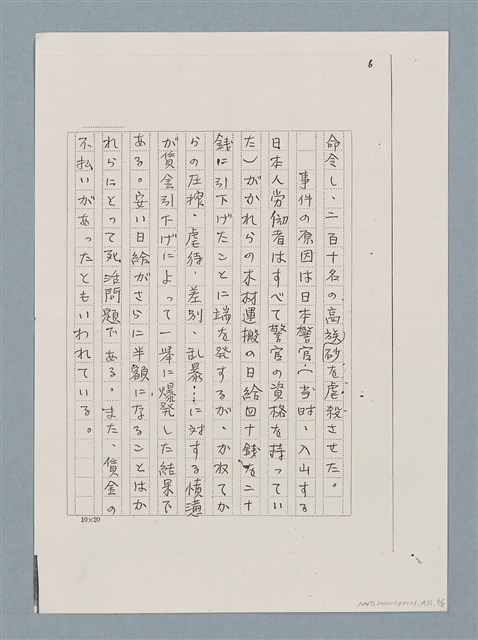 6
命令し、二百十名の高族砂を虐殺させた。
事件の原因は日本警官(当時、入山する
日本人労働者はすべて警官の資格を持ってい
た)がかれらの木材運搬の日給四十銭を二十
銭に引下げたことに端を発するが、かねてか
らの圧搾、虐待、差別、乱暴…に対する憤懣
が賃金引下げによって一挙に爆発した結果で
ある。安い日給がさらに半額になることはか
れらにとって死活問題である。また、賃金の
不払いがあったともいわれている。
10×20